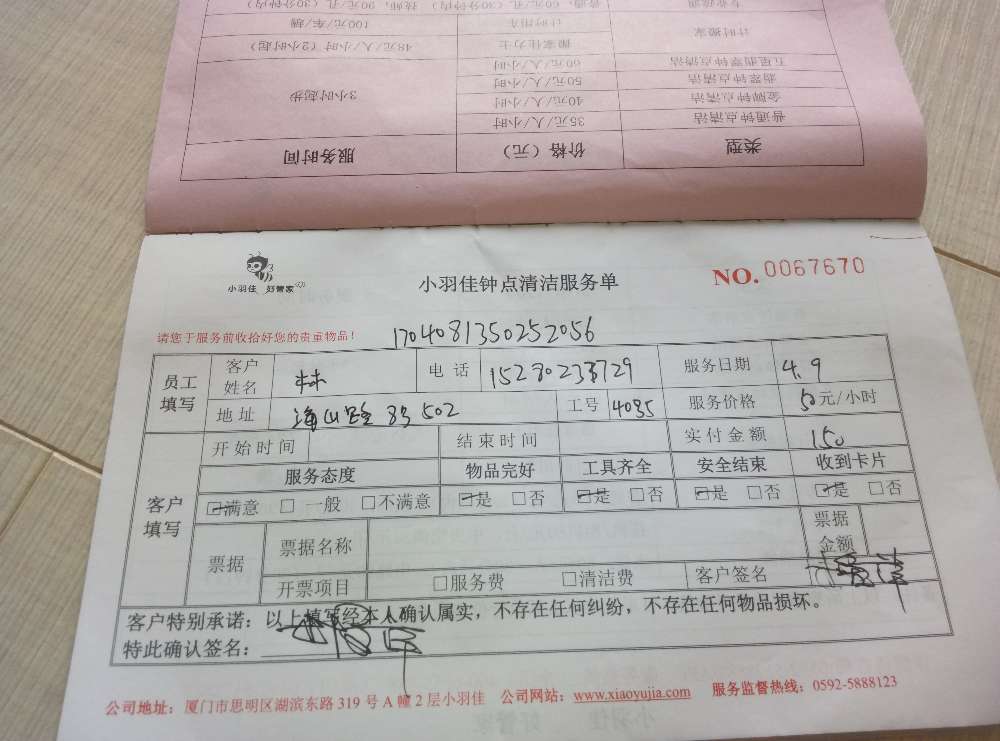 专业疏通 普通，60元/孔（30分钟内） 技师，90元/孔（30分钟内）
计时搬家 计时用车 100元/车/辆
搬家佳力士 48元/人/小时（2小时起）
五星翡翠钟点清洁 60元/人/小时
翡翠钟点清洁 50元/人/小时 3小时起步
金牌钟点清洁 40元/人/小时
普通钟点清洁 35元/人/小时
类型 价格（元） 服务时间
小羽佳 好管家
小羽佳钟点清洁服务单
NO.0067670
请您于服务前收拾好您的贵重物品！ 1704081350252056
员工填写 客户姓名 林 电话 服务日期 4.9
地址 海山路 83 502 工号 4085 服务价格 50元/小时
客户填写 开始时间 结束时间 实付金额 150
服务态度 物品完好 工具齐全 安全结束 收到卡片
☑满意 □一般 □不满意 ☑是 □否 ☑是 □否 ☑是 □否 ☑是 □否
票据 票据名称 票据金额
开票项目 □服务费 □清洁费 客户签名
客户特别承诺：以上填写经本人确认属实，不存在任何纠纷，不存在任何物品损坏。
特此确认签名：
公司地址：厦门市思明区湖滨东路319号A幢2层小羽佳 公司网站：www.xiaoyujia.com 服务监督热线：0592-5888123